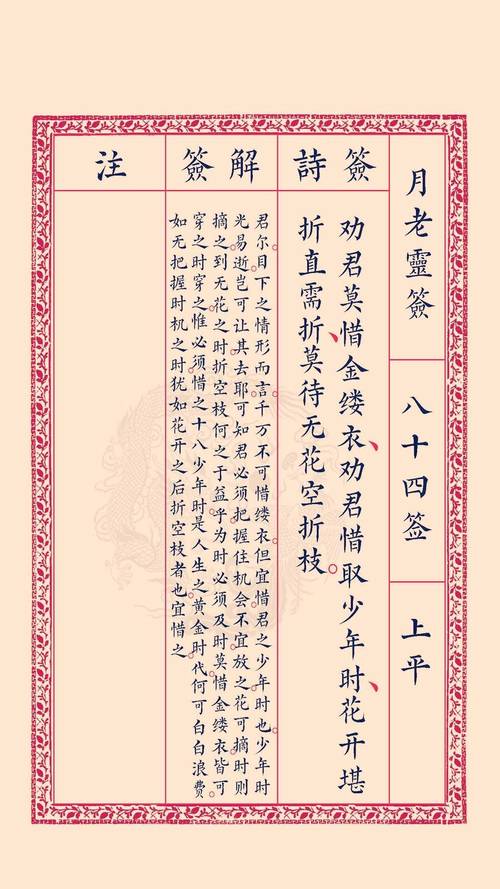 月老靈簽
八十四签
上平
簽詩
劝君莫惜金缕衣、劝君惜取少年时、花开堪
折直需折、莫待无花空折枝。
解簽
君尔目下之情形而言。千万不可惜缕衣。但宜惜君之少年时也。少年时
光易逝。岂可让其去耶。可知君必须把握住机会。不宜放之。花可摘时则
摘之。到无花之时折空枝。何之于益乎。为时必须及时。莫惜金缕衣。皆可
穿之时穿之。惟必须惜之。十八少年时。是人生之黄金时代。何可白白浪费。
如无把握时机之时。犹如花开之后折空枝者也。宜惜之
注